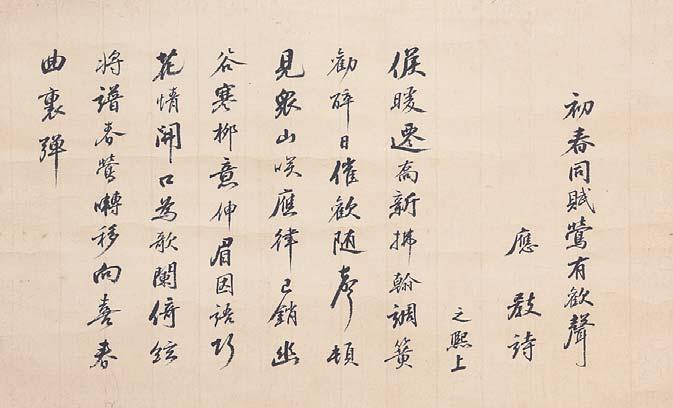 初春同賦鶯有歓聲
應教詩
之熙上
候暖遷喬新拂翰調簧
勧酔日催歓随聲頓
見衆山咲應律已銷幽
谷寒柳意伸眉因語巧
花情開口為歌闌倚絃
将譜春鶯囀移向喜春
曲裏弾